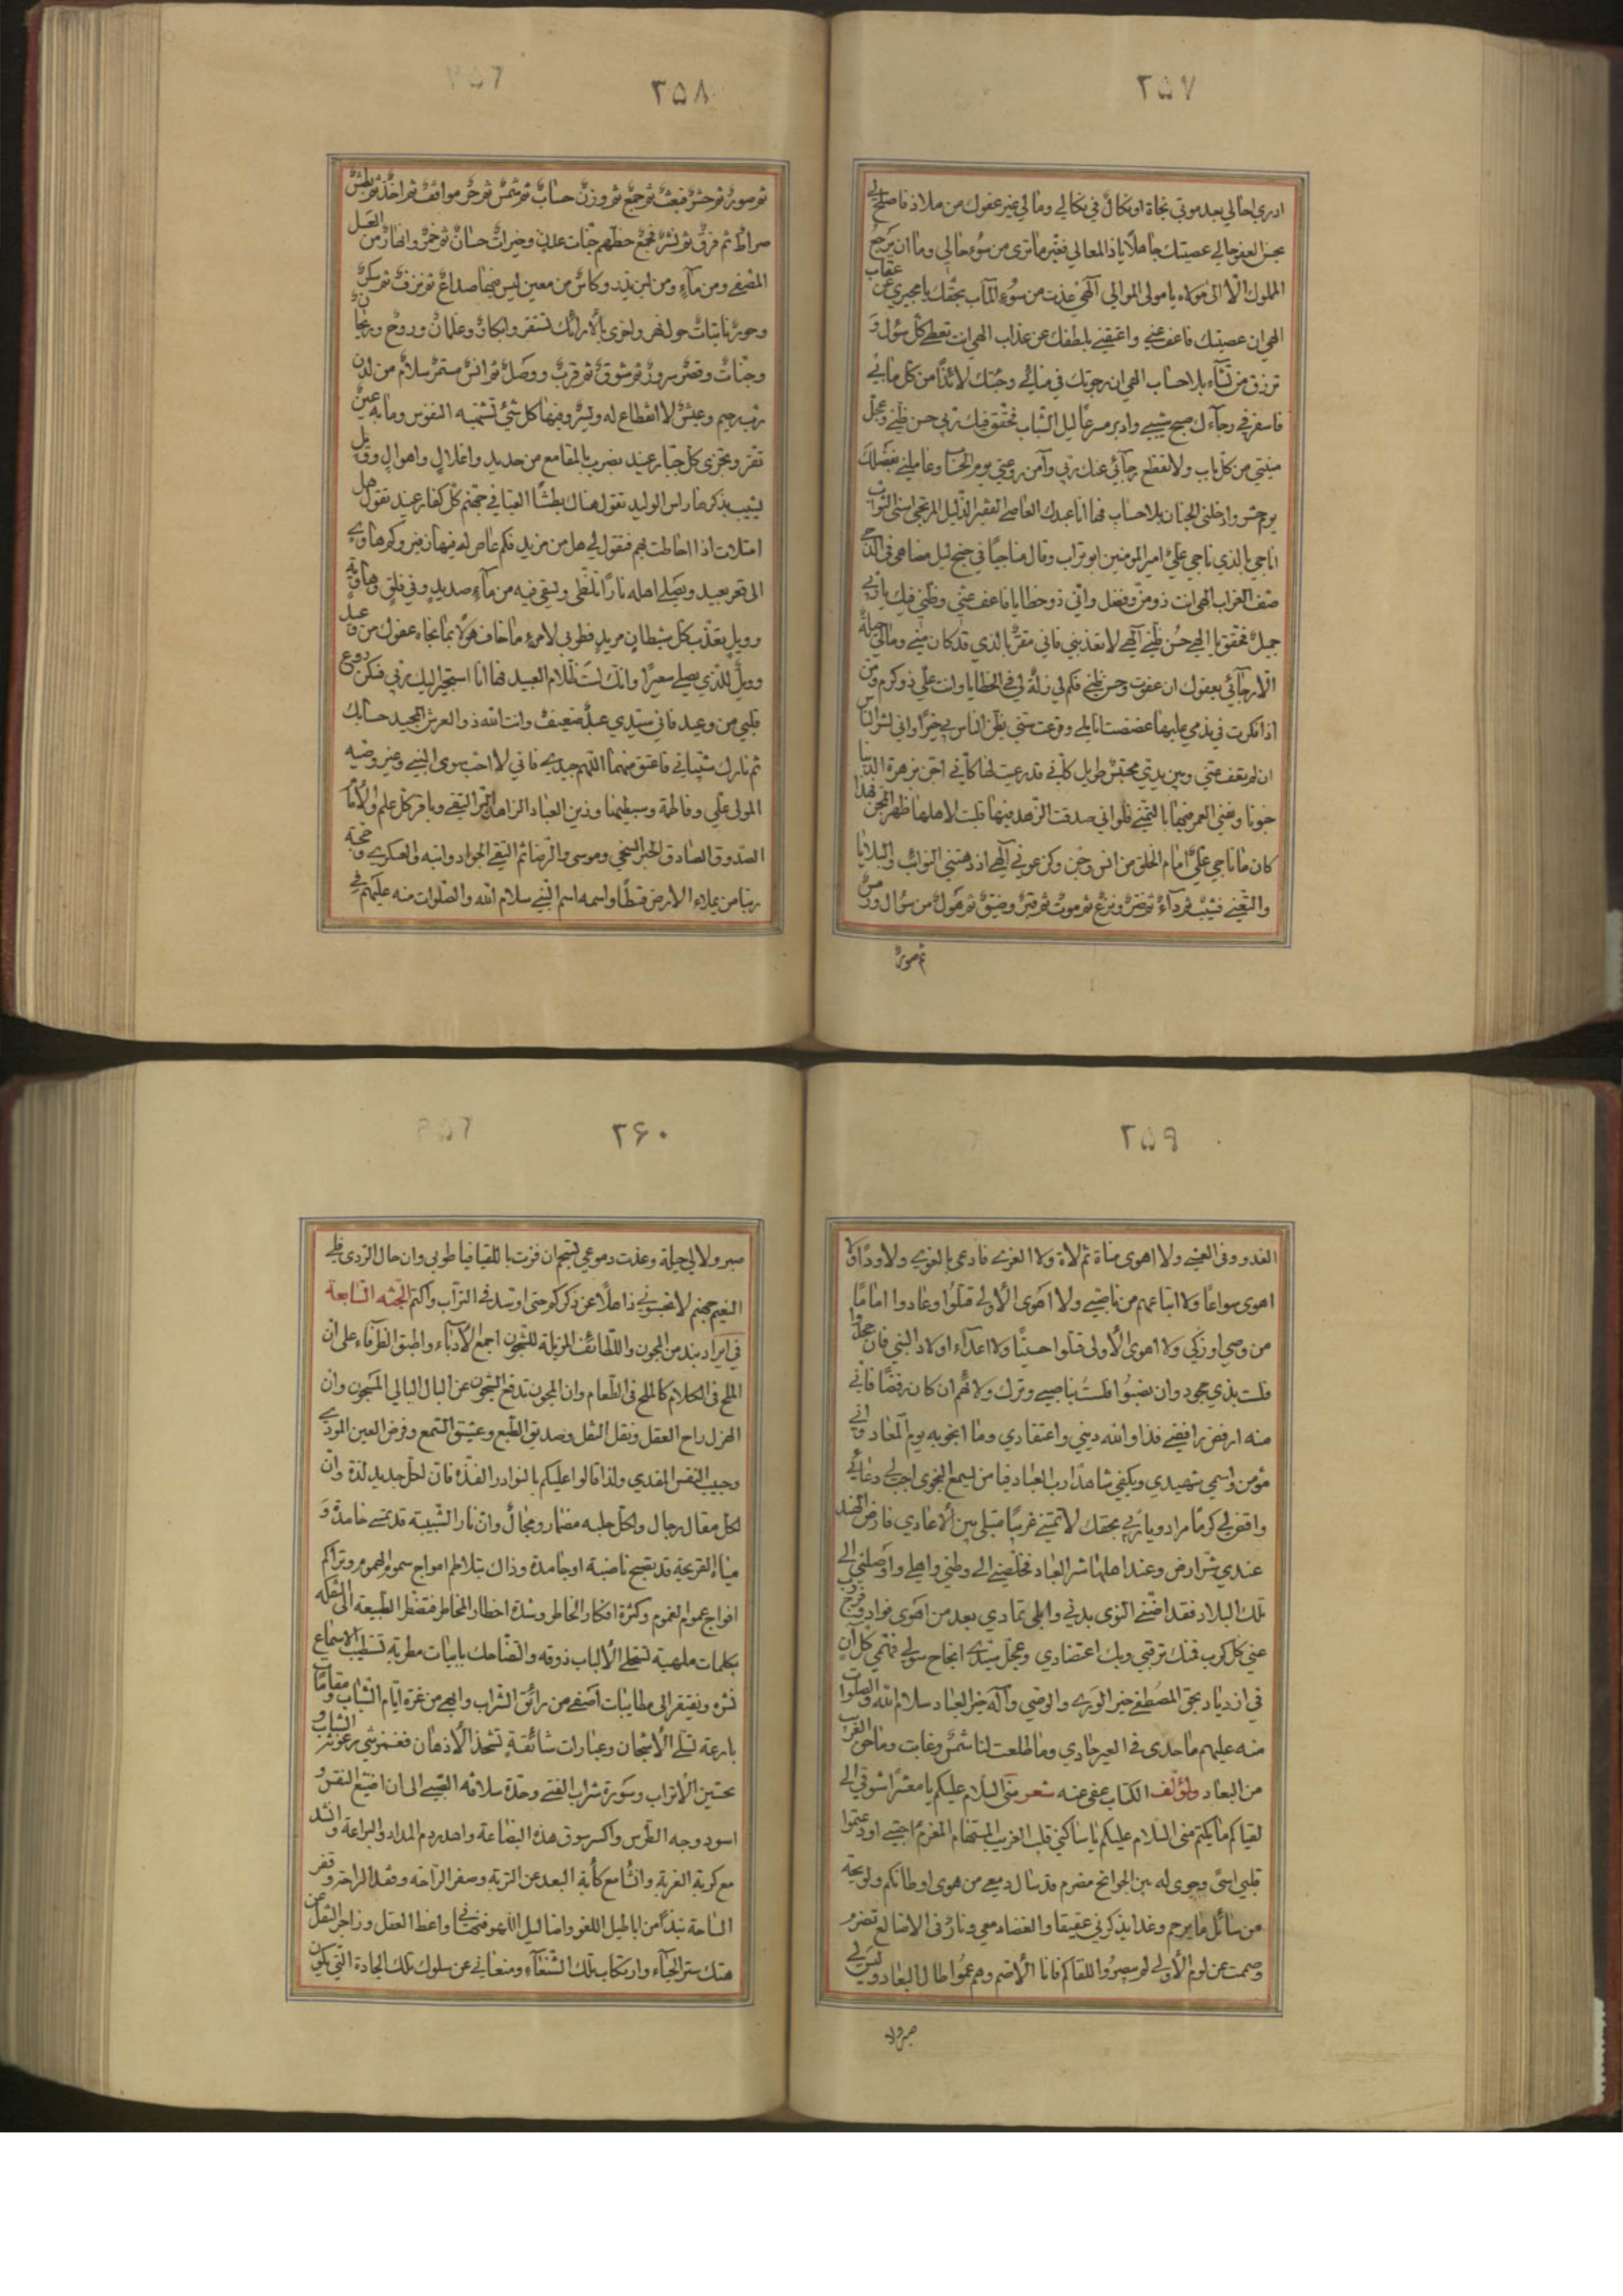 ٢٥٧
ادري احالي بعد موتي نجاة او نكال في نكالي ومالي غير عفوك من ملاذ فاصلح لي
بحسن العفو حالي عصيتك جاهلا ياذا المعالي فغير ما ترى من سوء حالي وما ان يرجع
المملوك الا الى مولاه يا مولى الموالي الهي عذت من سوء المآب بحقك يا مجيري عن عقاب
الهي ان عصيتك فاعف عني واعتقني بلطفك عن عذاب الهي انت تعطي كل سؤل و
ترزق من تشاء بلا حساب الهي ان رجوتك في منائي وجئتك لائذا من كل ما بي
فاسفر في رجاءك صبح شيبي وادبر مسرعا ليل الشباب فحقق فيك ربي حسن ظني وعجل
منيتي من كل باب ولا تقطع رجائي عنك ربي وآمن روعتي يوم الحساب وعاملني بفضلك
يوم حشر وادخلني الجنان بلا حساب فها انا عبدك العاصي الفقير الذليل المرتجي اسنى الثواب
اناجي بالذي ناجي علي امير المومنين ابو تراب وقال مناجيا في جنح ليل مضاهي في الدجى
صنف الغراب الهي انت ذو من وفضل واني ذو خطايا فاعف عني وظني فيك ياربي
جميل فحقق يا الهي حسن ظني الهي لا تعذبني فاني مقر بالذي قد كان مني ومالي حيلة
الا رجائي بعفوك ان عفوت وحسن ظني فكم لي زلة لي في الخطايا وانت علي ذو كرم ومن
اذا فكرت في ندمي عليها عضضت اناملي وقرعت سني يظن الناس بي خيرا واني لشر الناس
ان لم تعف عني وبين يدي محتبس طويل كاني قد دعيت لها كاني اجن بزهرة الدنيا
جنونا وتفني العمر منها بالتمني فلو اني صدقت الزهد فيها قلبت لاهلها ظهر المجن فهذا
كان ما ناجي علي امام الخلق من انس وجن وكن عوني الهي اذ دهتني النوائب والبلايا
والتعني فشيب ثم داء ثم ضر ونزع ثم موت ثم قبر وضيق ثم هول من سؤال ورد من
ثم صور
٢٥٨
ثم صور ثم حشر فبعث ثم جمع ثم وزن حساب ثم شمس ثم حر مواقف ثم اخذ ثم بطش
صراط ثم فرق ثم نشر فجمع حظهم جنات عدن وخيرات حسان ثم خمر وانهار من العسل
المصفى ومن ماء ومن لبن يلذ وكاس من معين ليس فيها صداع ثم نزف ثم سكر
وحور ناتيات حول نهر واخرى بالارائك تستقر وابكار وغلمان وروح وريحان
وجنات وقصر سرور ثم شوق ثم قرب ووصل ثم انس مستمر سلام من لدن
رب رحيم وعيش لا انقطاع له ويسر وفيها كل شئ تشتهيه النفوس وما به عين
تقر ويجزى كل جبار عنيد بضرب بالمقامع من حديد واغلال واهوال وويل
يشيب بذكرها راس الوليد تقول هناك بطشا القيا في جهنم كل كفار عنيد تقول هل
امتلات اذا احاطت بهم فتقول لي هل من مزيد فكم عاص له فيها زفير وكم هاو
الى قعر بعيد ويصلي اهله نارا تلظى ويسقي فيه من ماء صديد وفي فلق وهاوية
وويل يعذب كل شيطان مريد فطوبى لامرء ما خاف هولا بما نجاه عفوك من وعيد
وويل للذي يصلي سعيرا وانك لست ظلام العبيد فها انا استجير اليك ربي فسكن روع
قلبي من وعيد فاني سيدي عبد ضعيف وانت الله ذو العرش المجيد حسابك
ثم نارك شيباني فاعتق منهما اللهم جيدي فاني لا احب سوى النبي وغير وصيه
المولى علي وفاطمة وسبطيها وزين العباد الزاهد البر التقي وباقر كل علم والامام
الصدوق الصادق الحبر السخي وموسى والرضا ثم التقي الجواد وابنه والعسكري وحجة
ربنا من يملاء الارض قسطا واسمه اسم النبي سلام الله والصلوات منه عليهم في
٢٥٩
الغدو وفي العشي ولا اهوى مناة ثم لاة ولا العزى فادعى بالعزي ولا ودا ولا
اهوى سواعا ولا اتباعهم من ناصبي ولا اهوى الاولى قتلوا وعادوا اماما
من وصي او زكي ولا اهوى الاولى قتلوا حسينا ولا اعداء اولاد النبي فان جحدوا
فلست بذي جحود وان نصبوا فلست بناصبي وترك ولائهم ان كان رفضا فاني
منه ارفض رافضي فذا والله ديني واعتقادي وما انجو به يوم المعاد واني
مؤمن واسمي شهيدي ويكفي شاهدا رب العباد فيا من يسمع النجوى اجب لي دعائي
واقض لي كرما مرادي ويا ربي بحقك لا تمتني غريبا مبتلى بين الاعادي فارض الهند
عندي شر ارض وعند اهلها شر العباد فخلصني الى وطني واهلي واوصلني الى
تلك البلاد فقد اضنى النوى بدني وابلى تمادي بعد من اهوى فوادي وفرج
عني كل كرب فمنك ترقبي وبك اعتضادي وعجل سيدي انجاح سولي فهمي كل آن
في ازدياد بحق المصطفى خير الورى والوصي وآله خير العباد سلام الله والصلوات
منه عليهم ما حدى في العير حادي وما طلعت لنا شمس وغابت وما حن الغريب
من البعاد ولمؤلف الكتاب عفي عنه شعر مني السلام عليكم يا معشرا شوقي الى
لقياكم ما يكتم مني السلام عليكم يا ساكني قلب الغريب المستهام المغرم احبتي اودعتموا
قلبي اسى وجوى له بين الجوانح مضرم قد سال دمعي من هوى اوطانكم ولويحة
من سائل ما يرحم وغدا يذكرني عقيقا والغضا دمعي ونار في الاضالع تضرم
وصمت عن لوم الاولى لم يبصروا للقاكم فانا الاصم وهم عموا طال البعاد وليس لي
صبر ولا
٢٦٠
صبر ولا لي حيلة وغدت دموعي تسجم ان فزت باللقيا فيا طوبى وان حال الردى فلي
النعيم جهنم لا تحسبوني ذاهلا عن ذكركم حتى اوسد في التراب واكتم الجثه السابعة
في ايراد نبذ من المجون واللطائف المزيلة للشجون اجمع الادباء واطبق الظرفاء على ان
الملح في الكلام كالملح في الطعام وان المجون تدفع الشجون عن البال البالي المسجون وان
الهزل راح العقل ونقل النقل وصديق الطبع وعشيق السمع وقرض العين المودي
وحبيب النفس المفدي ولذا قالوا عليكم بالنوادر الفذة فان لكل جديد لذة وان
لكل مقال رجال ولكل حلبه مضمار ومجال وان نار الشبيبة قد تمسي خامدة و
مياه القريحة قد تصبح ناضبة او جامدة وذاك بتلاطم امواج سموم الهموم وتراكم
افواج غموم الغموم وكثرة افكار الخاطر وشدة اخطار المخاطر فتضطر الطبيعة الى التفكه
بكلمات ملهية تستحلي الالباب ذوقه والتضاحك بابيات مطربة تستطيب الاسماع
نشره وتفتقر الى مطايبات اصفى من رائق الشراب وابهى من غرة ايام الشباب ومقامات
بارعة تسلي الاشجان وعبارات شائقة تشحذ الاذهان فغمزتني رعونة الشباب و
تحسين الاتراب وسورة شراب الفتى وحدة سلافه الصبى الى ان اضيع النقس و
اسود وجه الطرس واكسر سوق هذه البضاعة واهدر دم المداد واليراعة وانشد
مع كربة الغربة وانشا مع كآبة البعد عن التربة وصفر الراحه وفقد الراحة وقفر
الساحة نبذا من اباطيل اللغو واضاليل اللهو فنهاني واعظ العقل وزاجر النقل عن
هتك ستر الحياء وارتكاب تلك الشنعاء ومنعاني عن سلوك تلك الجادة التي يكون